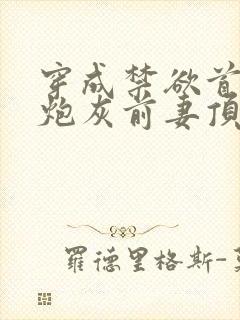 穿成禁欲首
炮灰前妻頂
羅德里格斯-莫